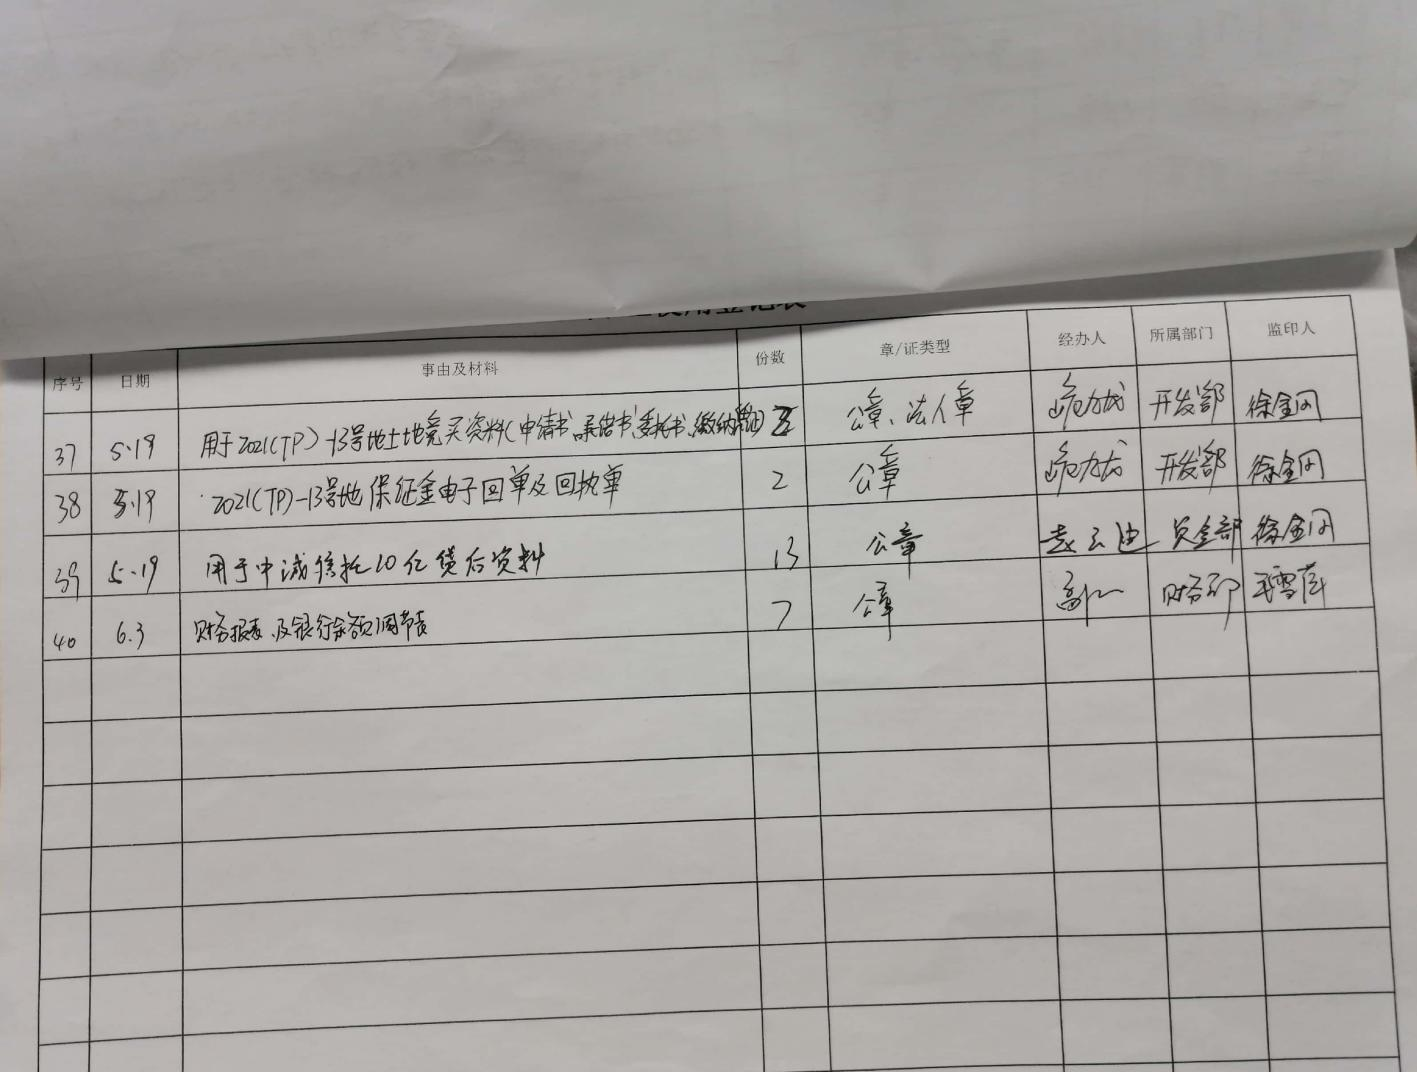 使用登记表
序号 日期 事由及材料 份数 章/证类型 经办人 所属部门 监印人
37 5.19 用于2021(TP)-13号地土地竞买资料(申请书、承诺书、委托书、缴纳 公章、法人章 开发部
38 5.19 2021(TP)-13号地保证金电子回单及回执单 2 公章 开发部
39 5.19 用于中诚信托10亿贷后资料 13 公章 袁云迪 资金部
40 6.3 财务报表、及银行余额调节表 7 公章 财务部